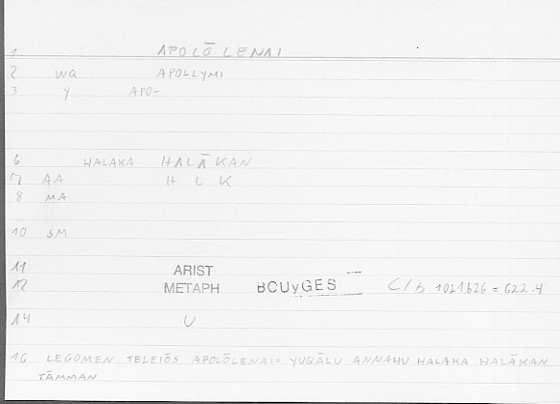 1 APOLŌLENAI
2 WQ APOLLYMI
3 Y APO-
6 HALAKA HALĀKAN
7 AA H L K
8 MA
10 SM
11 ARIST
12 METAPH BCUyGES C/b 1021b26 = 622.4
14 U
16 LEGOMEN TELEIŌS APOLŌLENAI= YUQĀLU ANNAHU HALAKA HALĀKAN
TĀMMAN